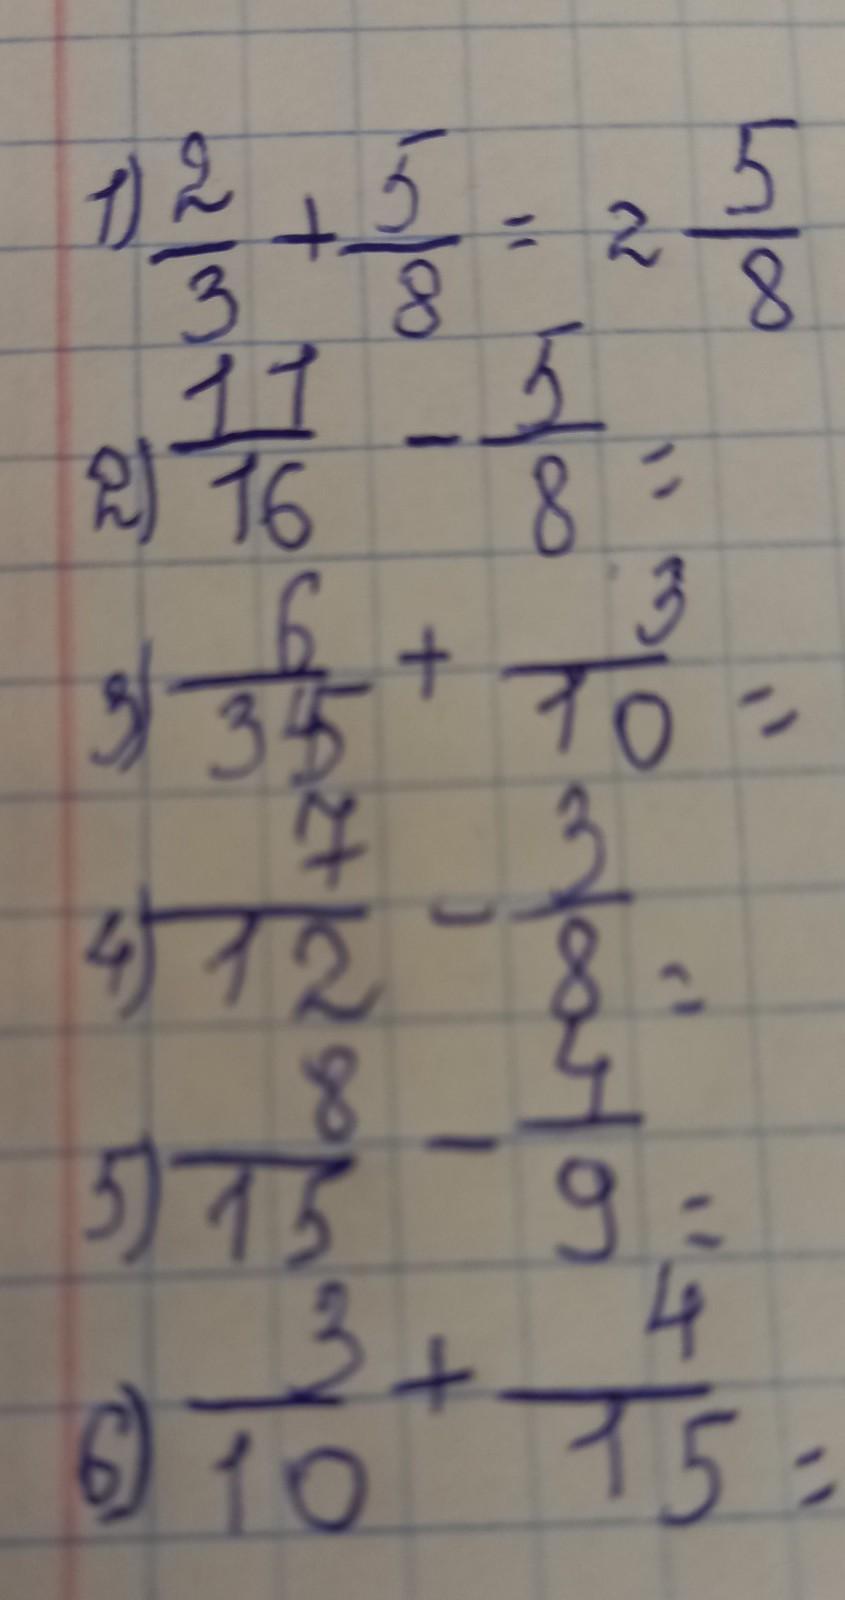 1) 2/3 + 5/8 = 2 5/8
2) 11/16 - 5/8 =
3) 6/35 + 3/10 =
4) 7/12 - 3/8 =
5) 8/15 - 4/9 =
6) 3/10 + 4/15 =